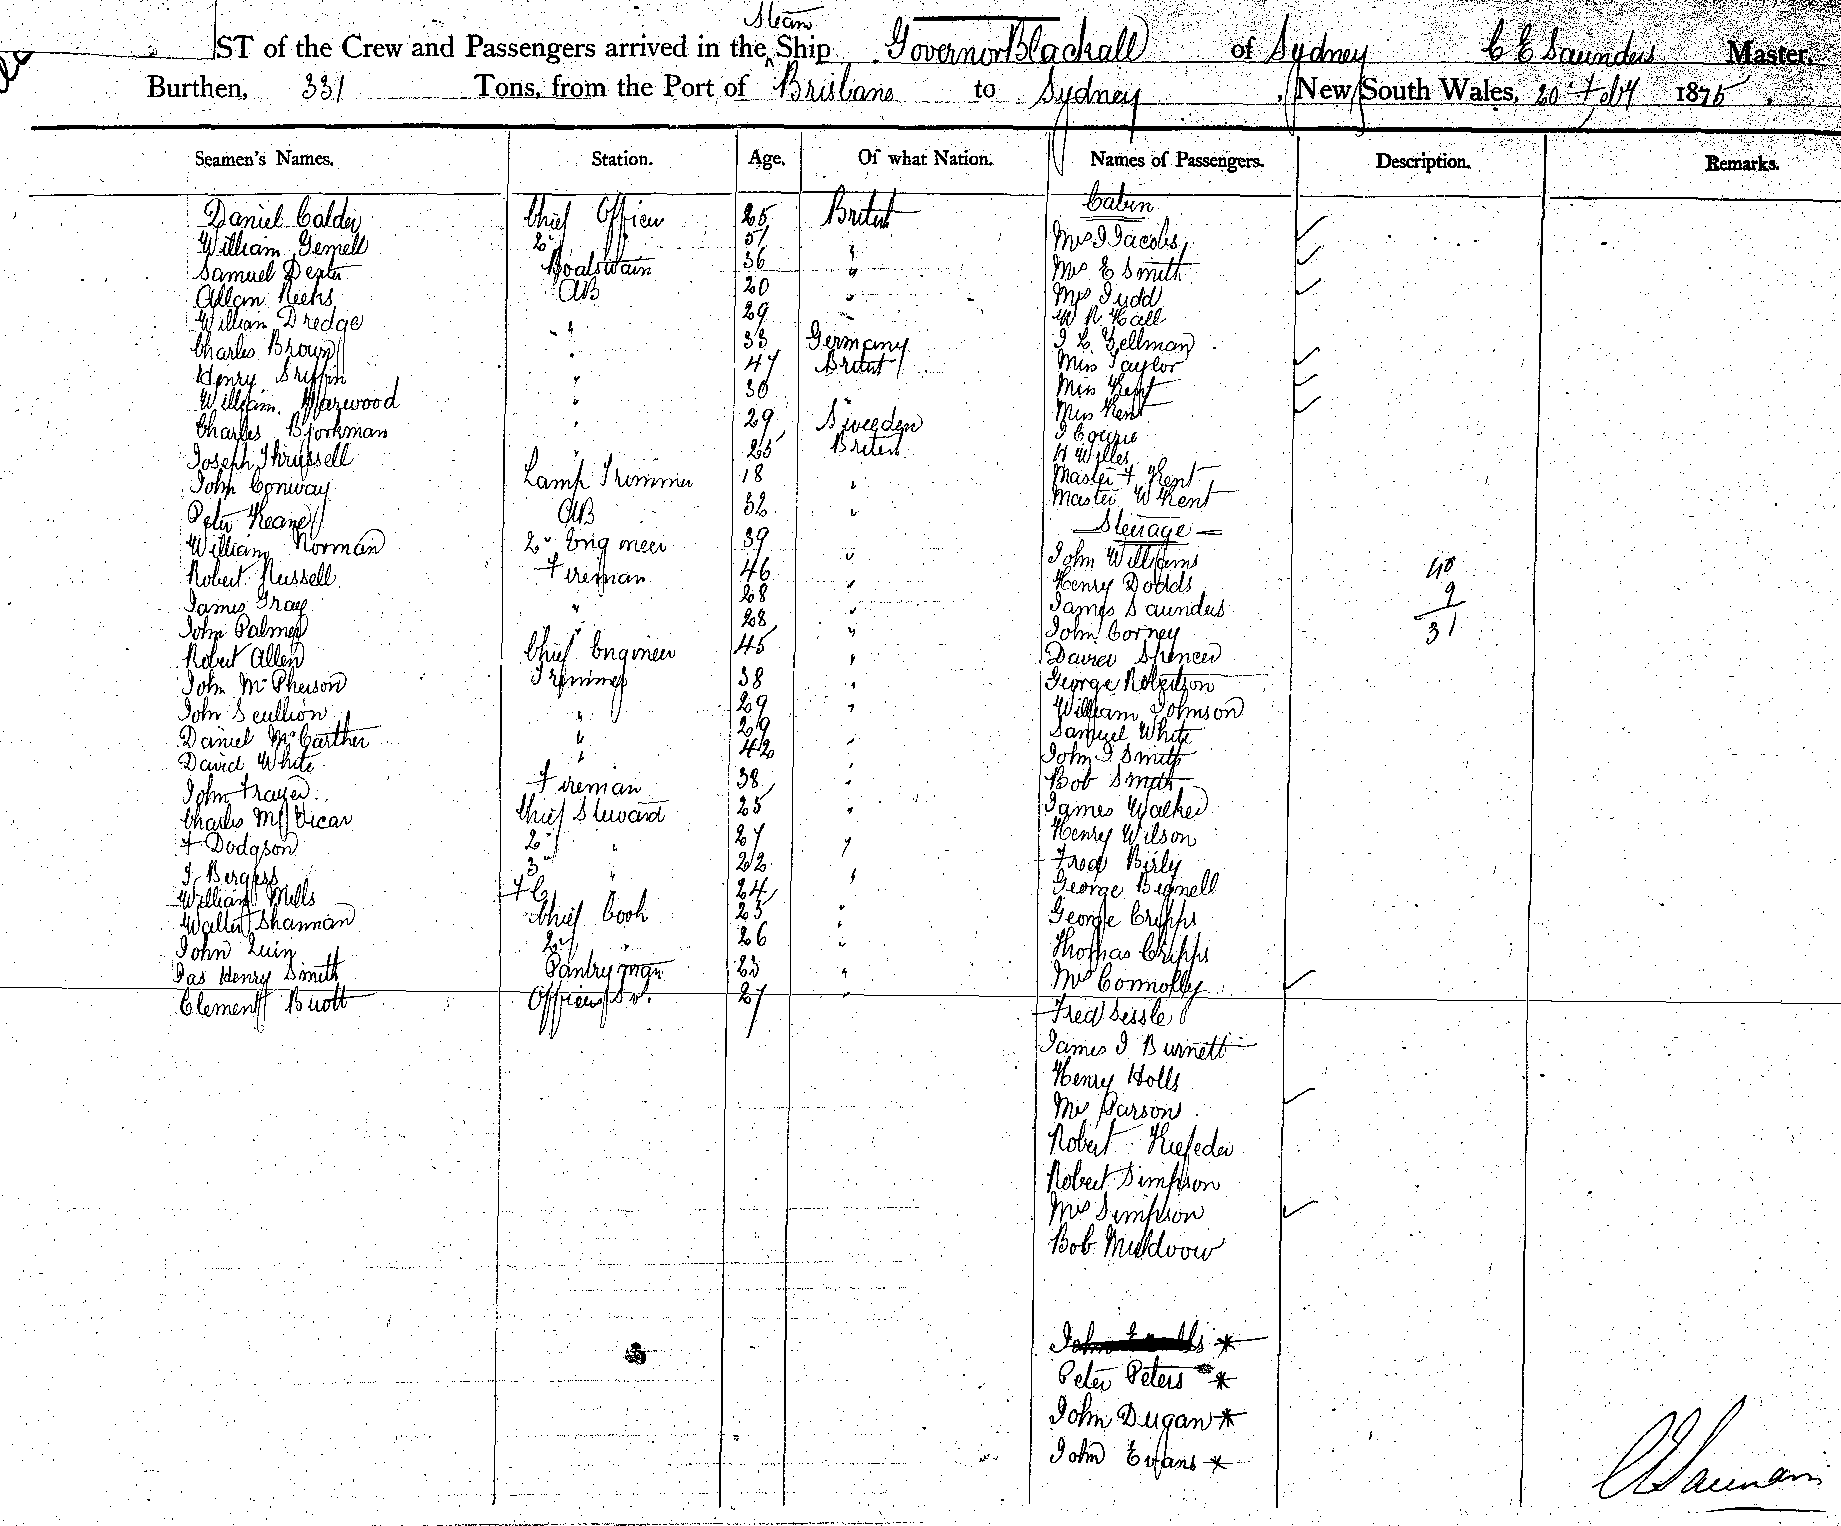 Steam
ST of the Crew and Passengers arrived in the Ship Governor Blackall of Sydney C E Saunders Master,
Burthen, 331 Tons, from the Port of Brisbane to Sydney, New South Wales, 20 Feby 1875.
Seamen's Names. Station. Age. Of what Nation. Names of Passengers. Description. Remarks.
Cabin
Daniel Calder Chief Officer 25 British
William Gemell 2nd " 51 " Mrs J Jacobs
Samuel Dexter Boatswain 36 " Mrs E Smith
Allan Reeks AB 20 " Mrs Judd
William Dredge " 29 " W R Hall
Charles Brown " 33 Germany J L Gellman
Henry Griffin " 47 British Miss Taylor
William Harwood " 30 " Miss Kent
Charles Bjorkman " 29 Sweeden Miss Kent
Joseph Thrussell " 25 British J Cowrie
H Willes
John Conway Lamp Trimmer 18 " Master F Kent
Peter Keane AB 32 " Master W Kent
Steerage
William Norman 2nd Engineer 39 " John Williams
Robert Russell Fireman 46 " Henry Dodds 40
James Gray " 28 " James Saunders 9
John Palmer " 28 " John Corney 31
Robert Allen Chief Engineer 45 " David Spencer
John McPherson Trimmer 38 " George Robertson
John Scullion " 29 " William Johnson
Daniel McCarther " 29 " Samuel White
David White " 42 " John J Smith
John Frayer Fireman 38 " Bob Smith
Charles McVicar Chief Steward 25 " James Walker
F Dodgson 2nd " 27 " Henry Wilson
J Bergess 3rd " 22 " Fred Birly
William Mills F C 24 George Bignell
Walter Shannan Chief Cook 23 " George Cripps
John Quin 2nd " 26 " Thomas Cripps
Jas Henry Smith Pantryman 23 " Mrs Connolly
Clement Buott Officers Sr. 27 " Fred Sessle
James J Burnett
Henry Holls
Mrs Parson
Robert Kiefeder
Robert Simpson
Mrs Simpson
Bob Muldoow
John *
Peter Peters *
John Dugan *
John Evans *
C E Saunders